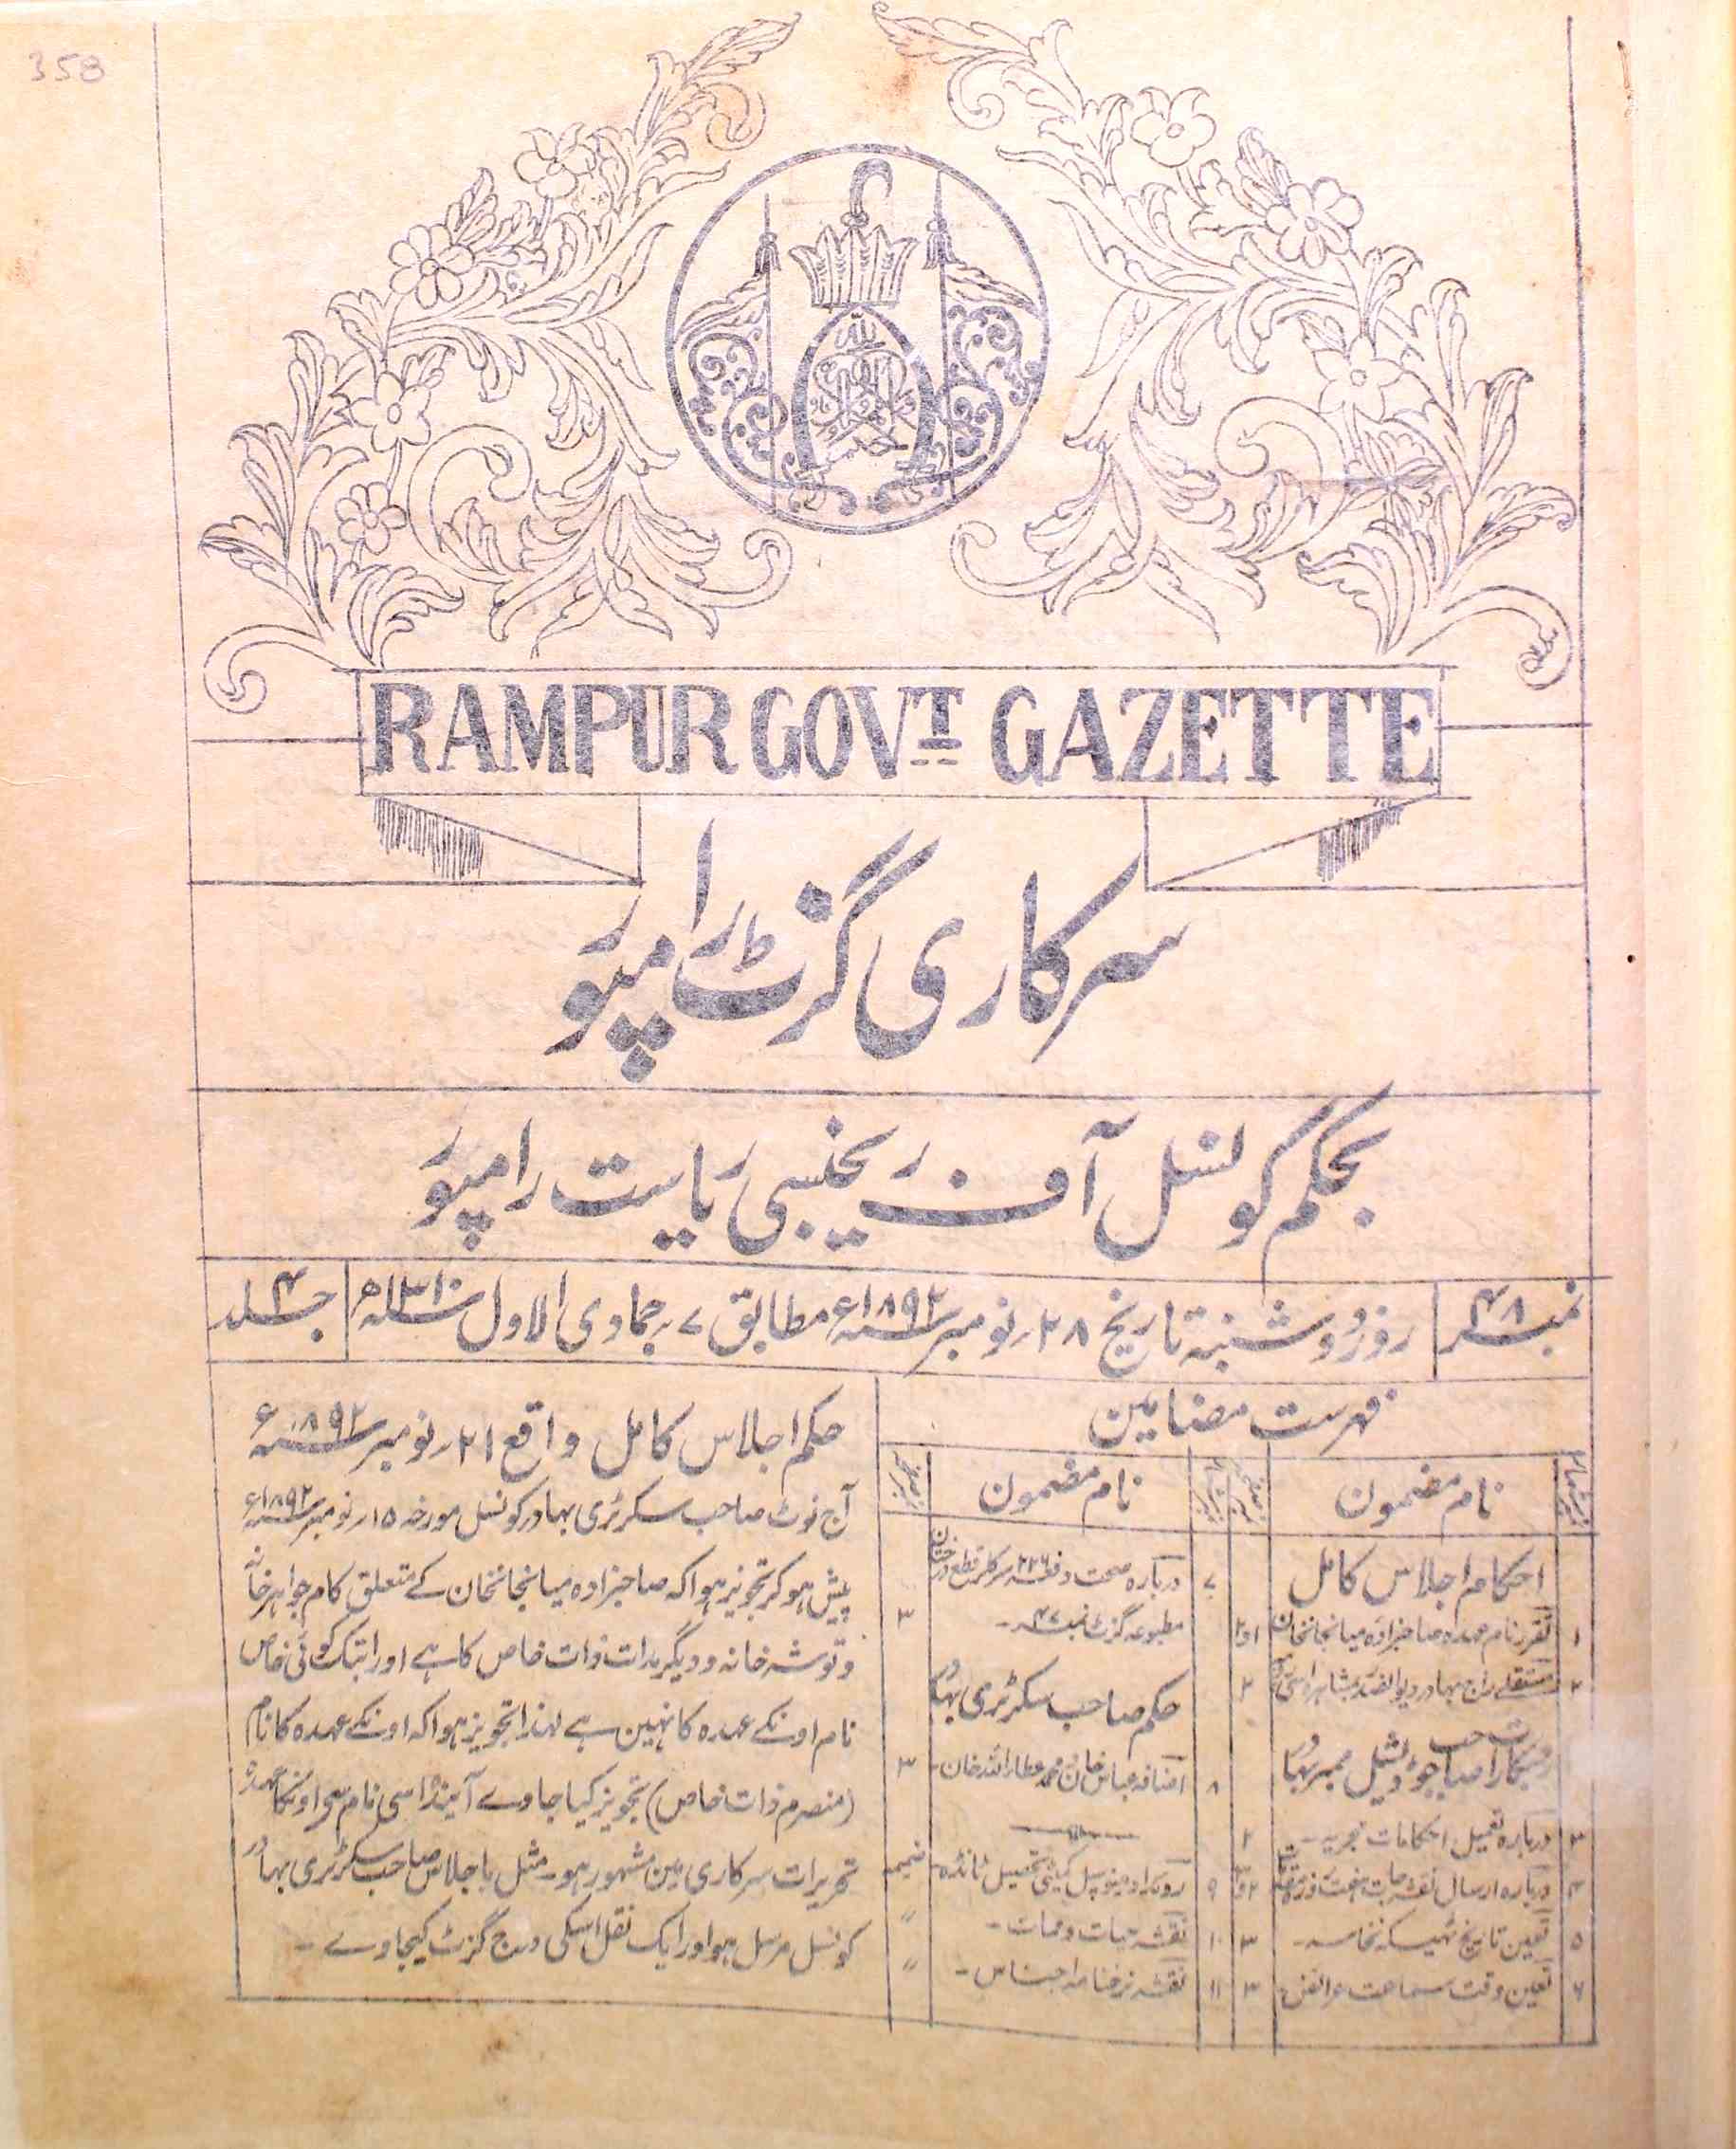 358
RAMPUR GOVT GAZETTE
سرکاری گزٹ رامپور
بحکم کونسل آف ریجنسی ریاست رامپور
نمبر ۴۸
روز دوشنبہ تاریخ ۲۸ نومبر سنہ ۱۸۹۲ء مطابق ۷ جمادی الاول سنہ ۱۳۱۰ھ
جلد ۴
فہرست مضامین
نام مضمون
احکام اجلاس کامل
۱ تقرر نام عہدہ صاحبزادہ میانجانخان ۱و۲
۲ راج بہادر ۲
۳ دربارہ تعمیل احکامات مجریہ ۲
۴ دربارہ ارسال نقشہ جات
۵ تعین تاریخ نخاسہ ۳
۶ تعین وقت سماعت عرائض ۳
نام مضمون
۷ دربارہ صحت دفعہ ۲۲۶ سرکلر قطع درختان
مطبوعہ گزٹ نمبر ۴۷ ۳
حکم صاحب سکرٹری بہادر
۸ اضافہ عباس خان محمد عطاء اللہ خان ۳
۹ روئداد میونسپل کمیٹی تحصیل ٹانڈہ ضمیمہ
۱۰ نقشہ حیات و ممات ۔ ״
۱۱ نقشہ نرخنامہ اجناس ۔ ״
حکم اجلاس کامل واقع ۲۱ نومبر سنہ ۱۸۹۲ء
آج نوٹ صاحب سکرٹری بہادر کونسل مورخہ ۱۵ نومبر سنہ ۱۸۹۲ء
پیش ہوکر تجویز ہوا کہ صاحبزادہ میانجانخان کے متعلق کام جواہر خانہ
و توشہ خانہ و دیگر مدات ذات خاص کا ہے اور ابتک کوئی خاص
نام اونکے عہدہ کا نہین ہے لہذا تجویز ہوا کہ اونکے عہدہ کا نام
(منصرم ذات خاص) تجویز کیا جاوے آیندہ اسی نام سے اونکا عہدہ
تحریرات سرکاری مین مشہور ہو ۔ مثل باجلاس صاحب سکرٹری بہادر
کونسل مرسل ہو اور ایک نقل اسکی درج گزٹ کیجاوے ۔